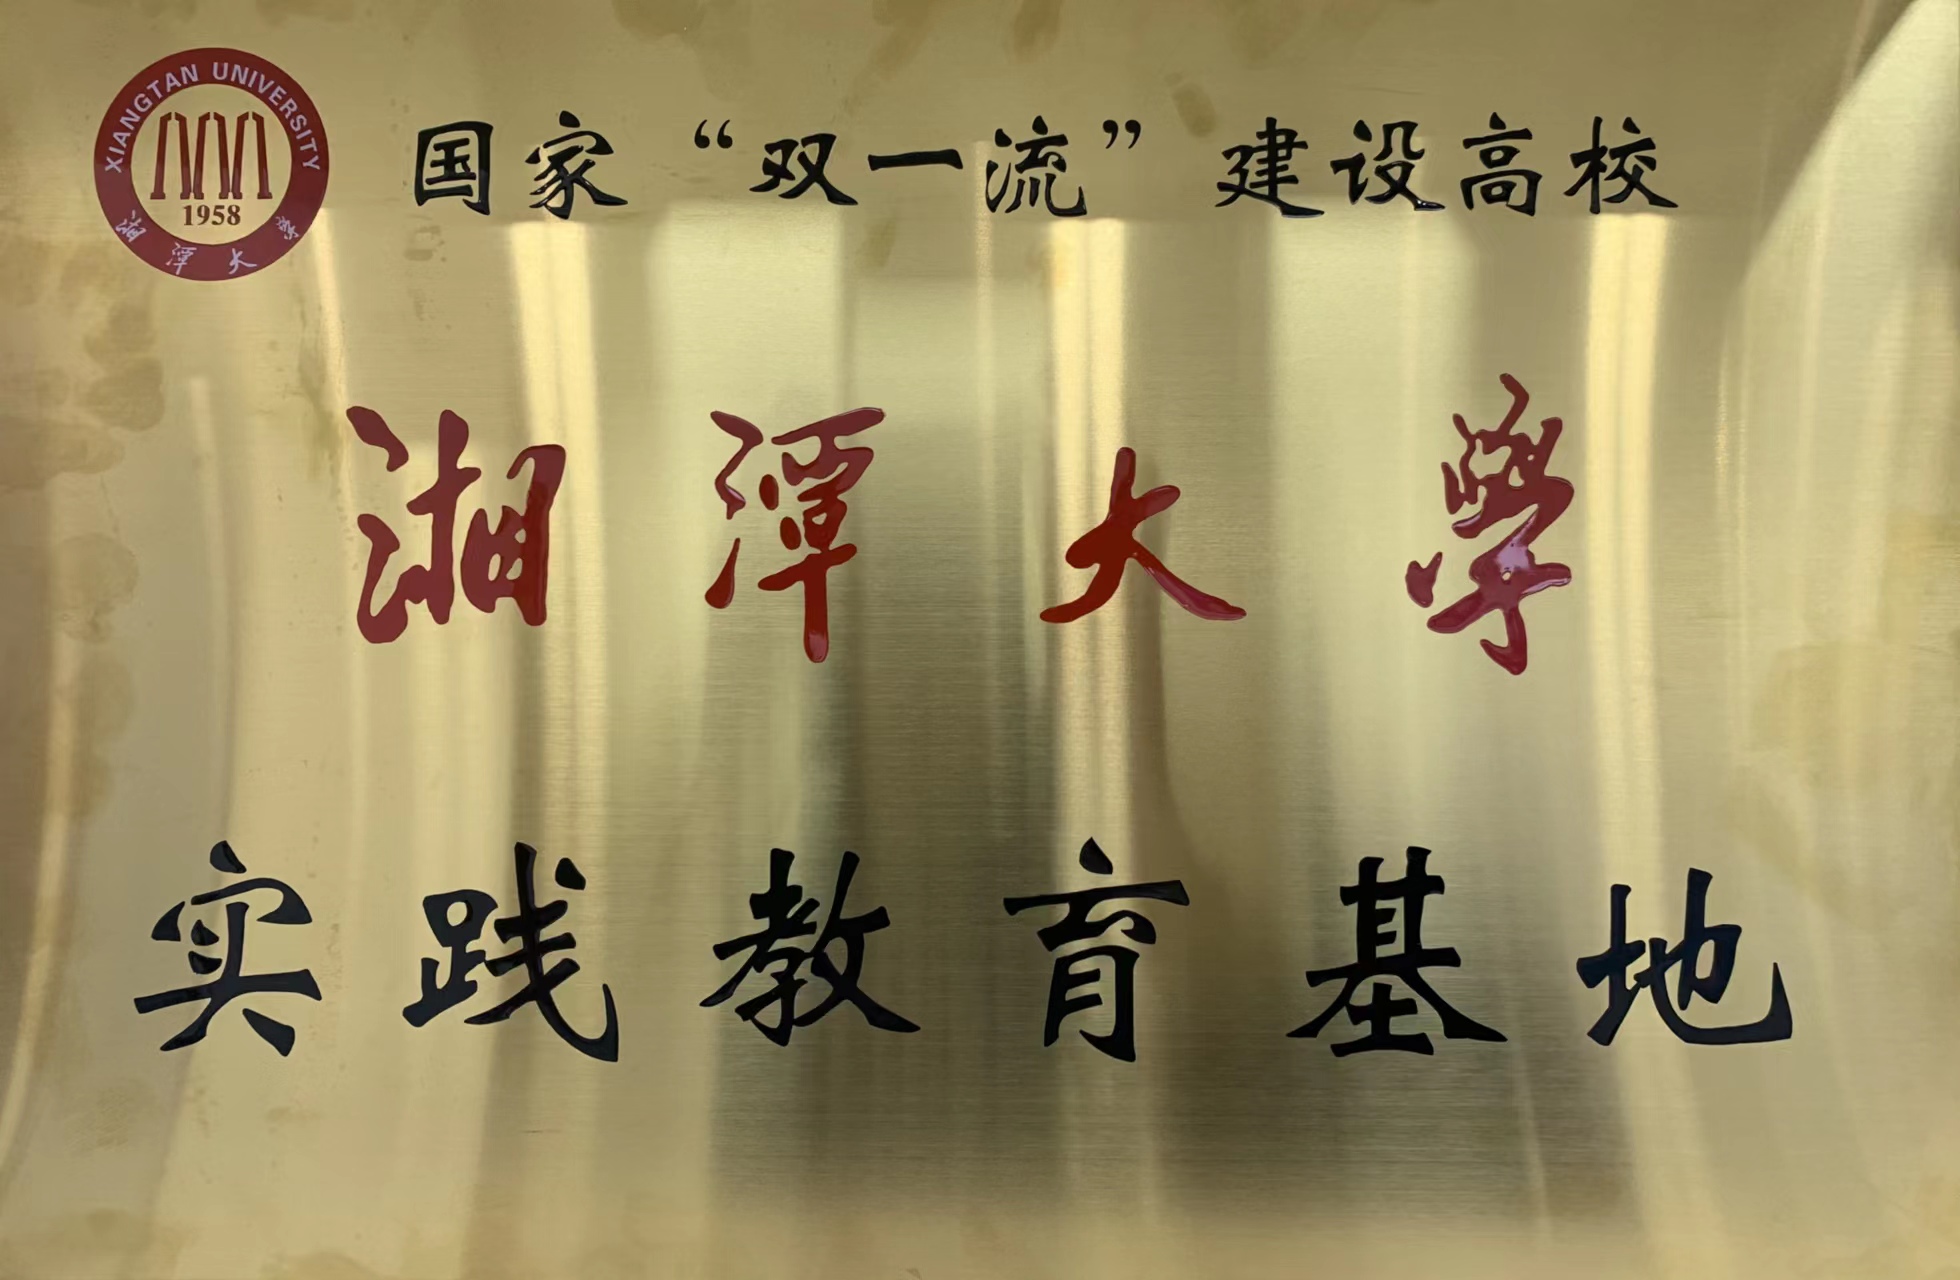 XIANGTAN UNIVERSITY
1958
湘潭大學
国家“双一流”建设高校
湘潭大學
实践教育基地